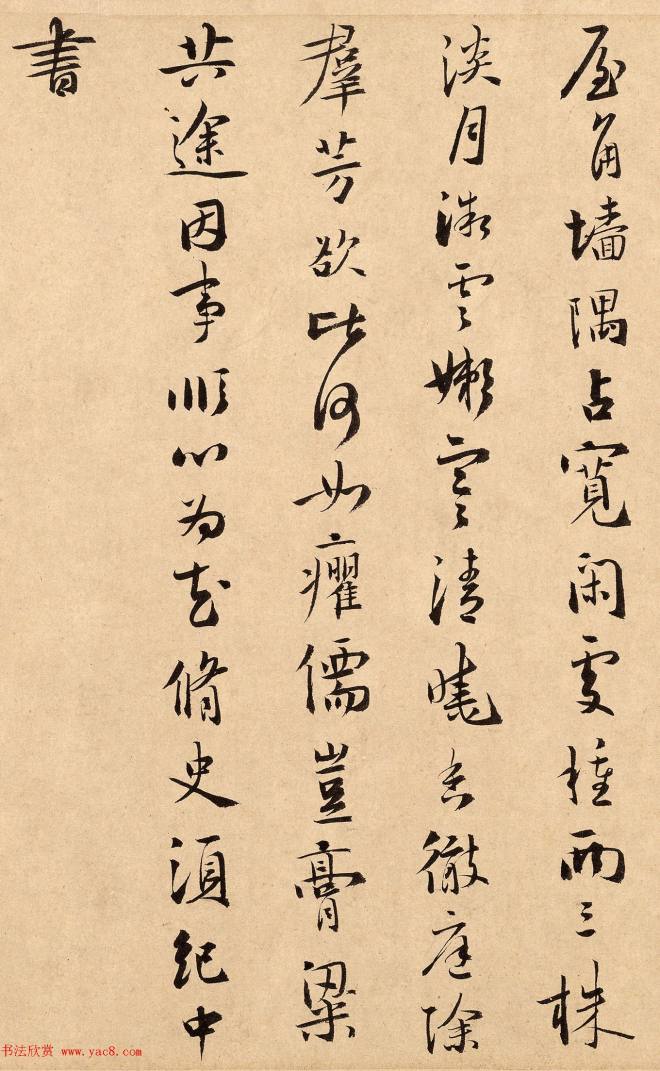 屋角墙隅占寬閑處種兩三株
淡月微雲嫩寒清曉香徹庭除
羣芳欲比何如癯儒豈膏粱
共途因事順心為花脩史須紀中
書
书法欣赏 www.yac8.com